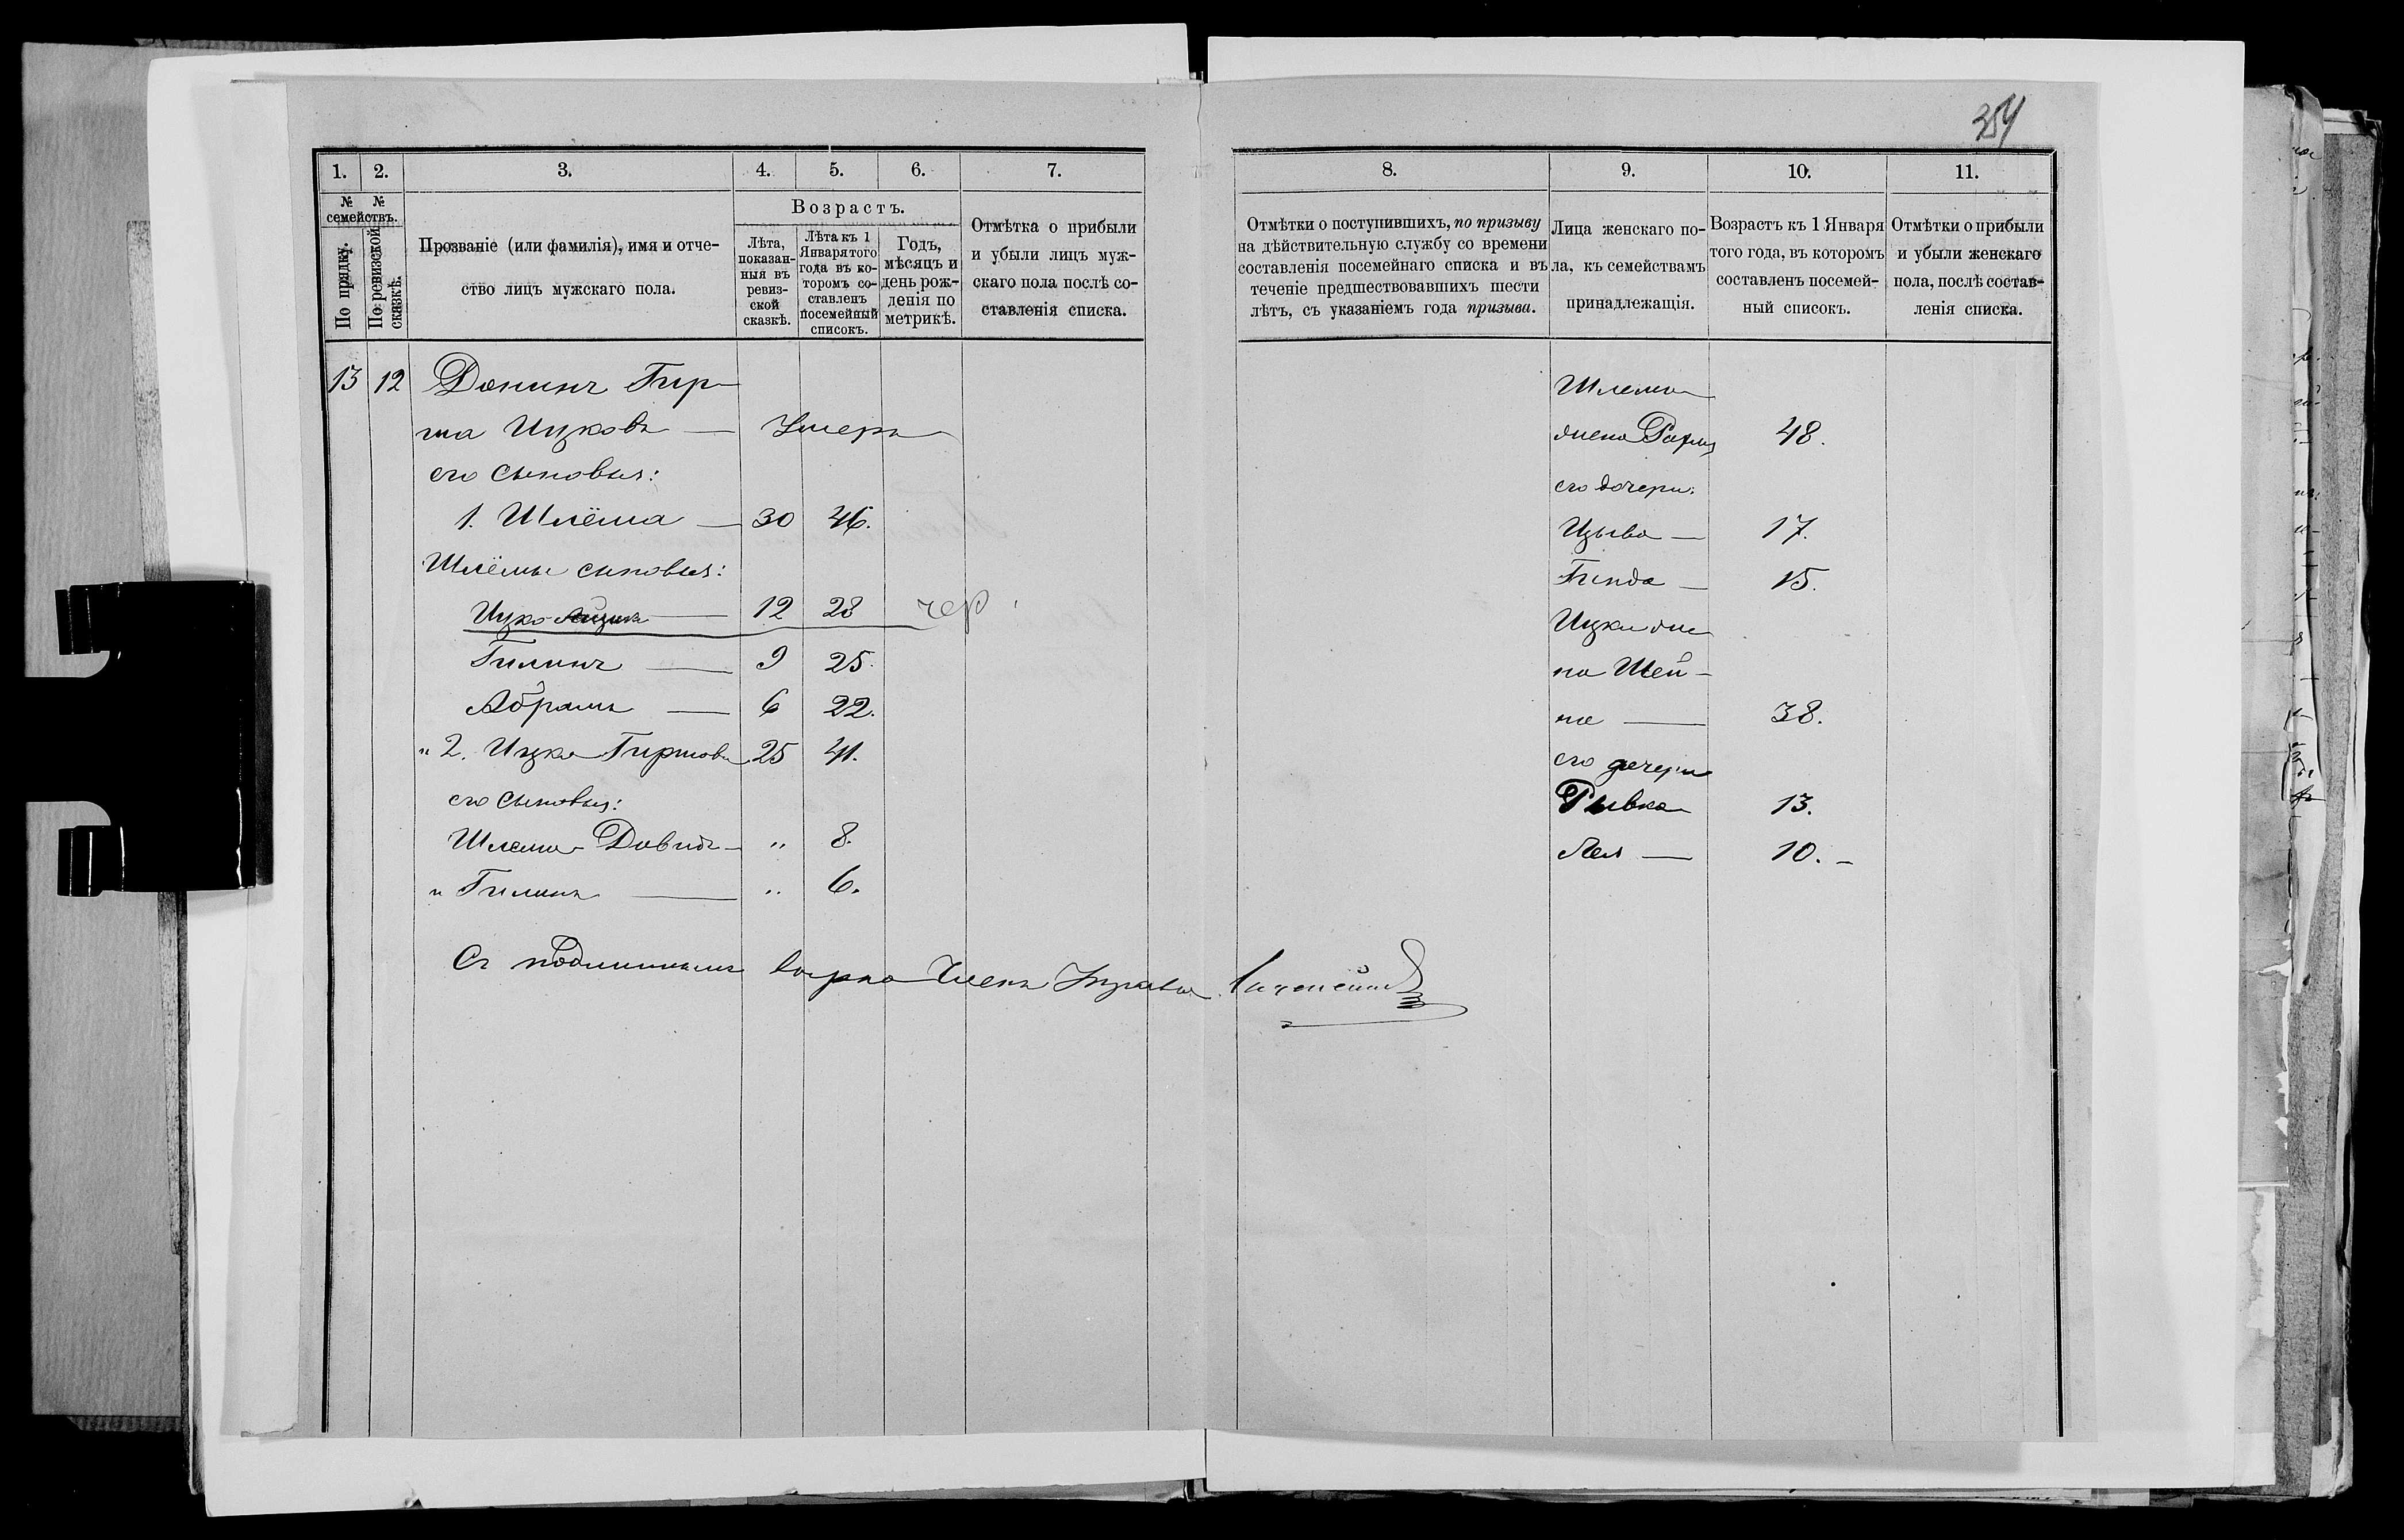 354
1. 2. 3. 4. 5. 6. 7.
№ №
семействъ.
По прядку.
По ревизской
сказкѣ.
Прозваніе (или фамилія), имя и отче-
ство лицъ мужскаго пола.
Возрастъ.
Лѣта,
показан-
ныя въ
ревиз-
ской
сказкѣ.
Лѣта къ 1
Января того
года въ ко-
торомъ со-
ставленъ
посемейный
списокъ.
Годъ,
мѣсяцъ и
день рож-
денія по
метрикѣ.
Отмѣтка о прибыли
и убыли лицъ муж-
скаго пола послѣ со-
ставленія списка.
13 12 Донинъ Гир-
ша Ицковъ — Умеръ
его сыновья:
1. Шлёма — 30 46.
Шлёмы сыновья:
Ицко 12 28
Гилинъ — 9 25.
Абрамъ — 6 22.
" 2. Ицко Гиршовъ 25 41.
его сыновья:
Шлемо-Довидъ — " 8.
" Гилинъ — " 6.
Съ подлиннымъ вѣрно Членъ Управы
8. 9. 10. 11.
Отмѣтки о поступившихъ, по призыву
на дѣйствительную службу со времени
составленія посемейнаго списка и въ
теченіе предшествовавшихъ шести
лѣтъ, съ указаніемъ года призыва.
Лица женскаго по-
ла, къ семействамъ
принадлежащія.
Возрастъ къ 1 Января
того года, въ которомъ
составленъ посемей-
ный списокъ.
Отмѣтки о прибыли
и убыли женскаго
пола, послѣ состав-
ленія списка.
Шлемы
жена 48.
его дочери:
Цыва — 17.
Гинда — 15.
Ицки же-
на Шей-
на — 38.
его дочери
Рывка 13.
Лея — 10. -